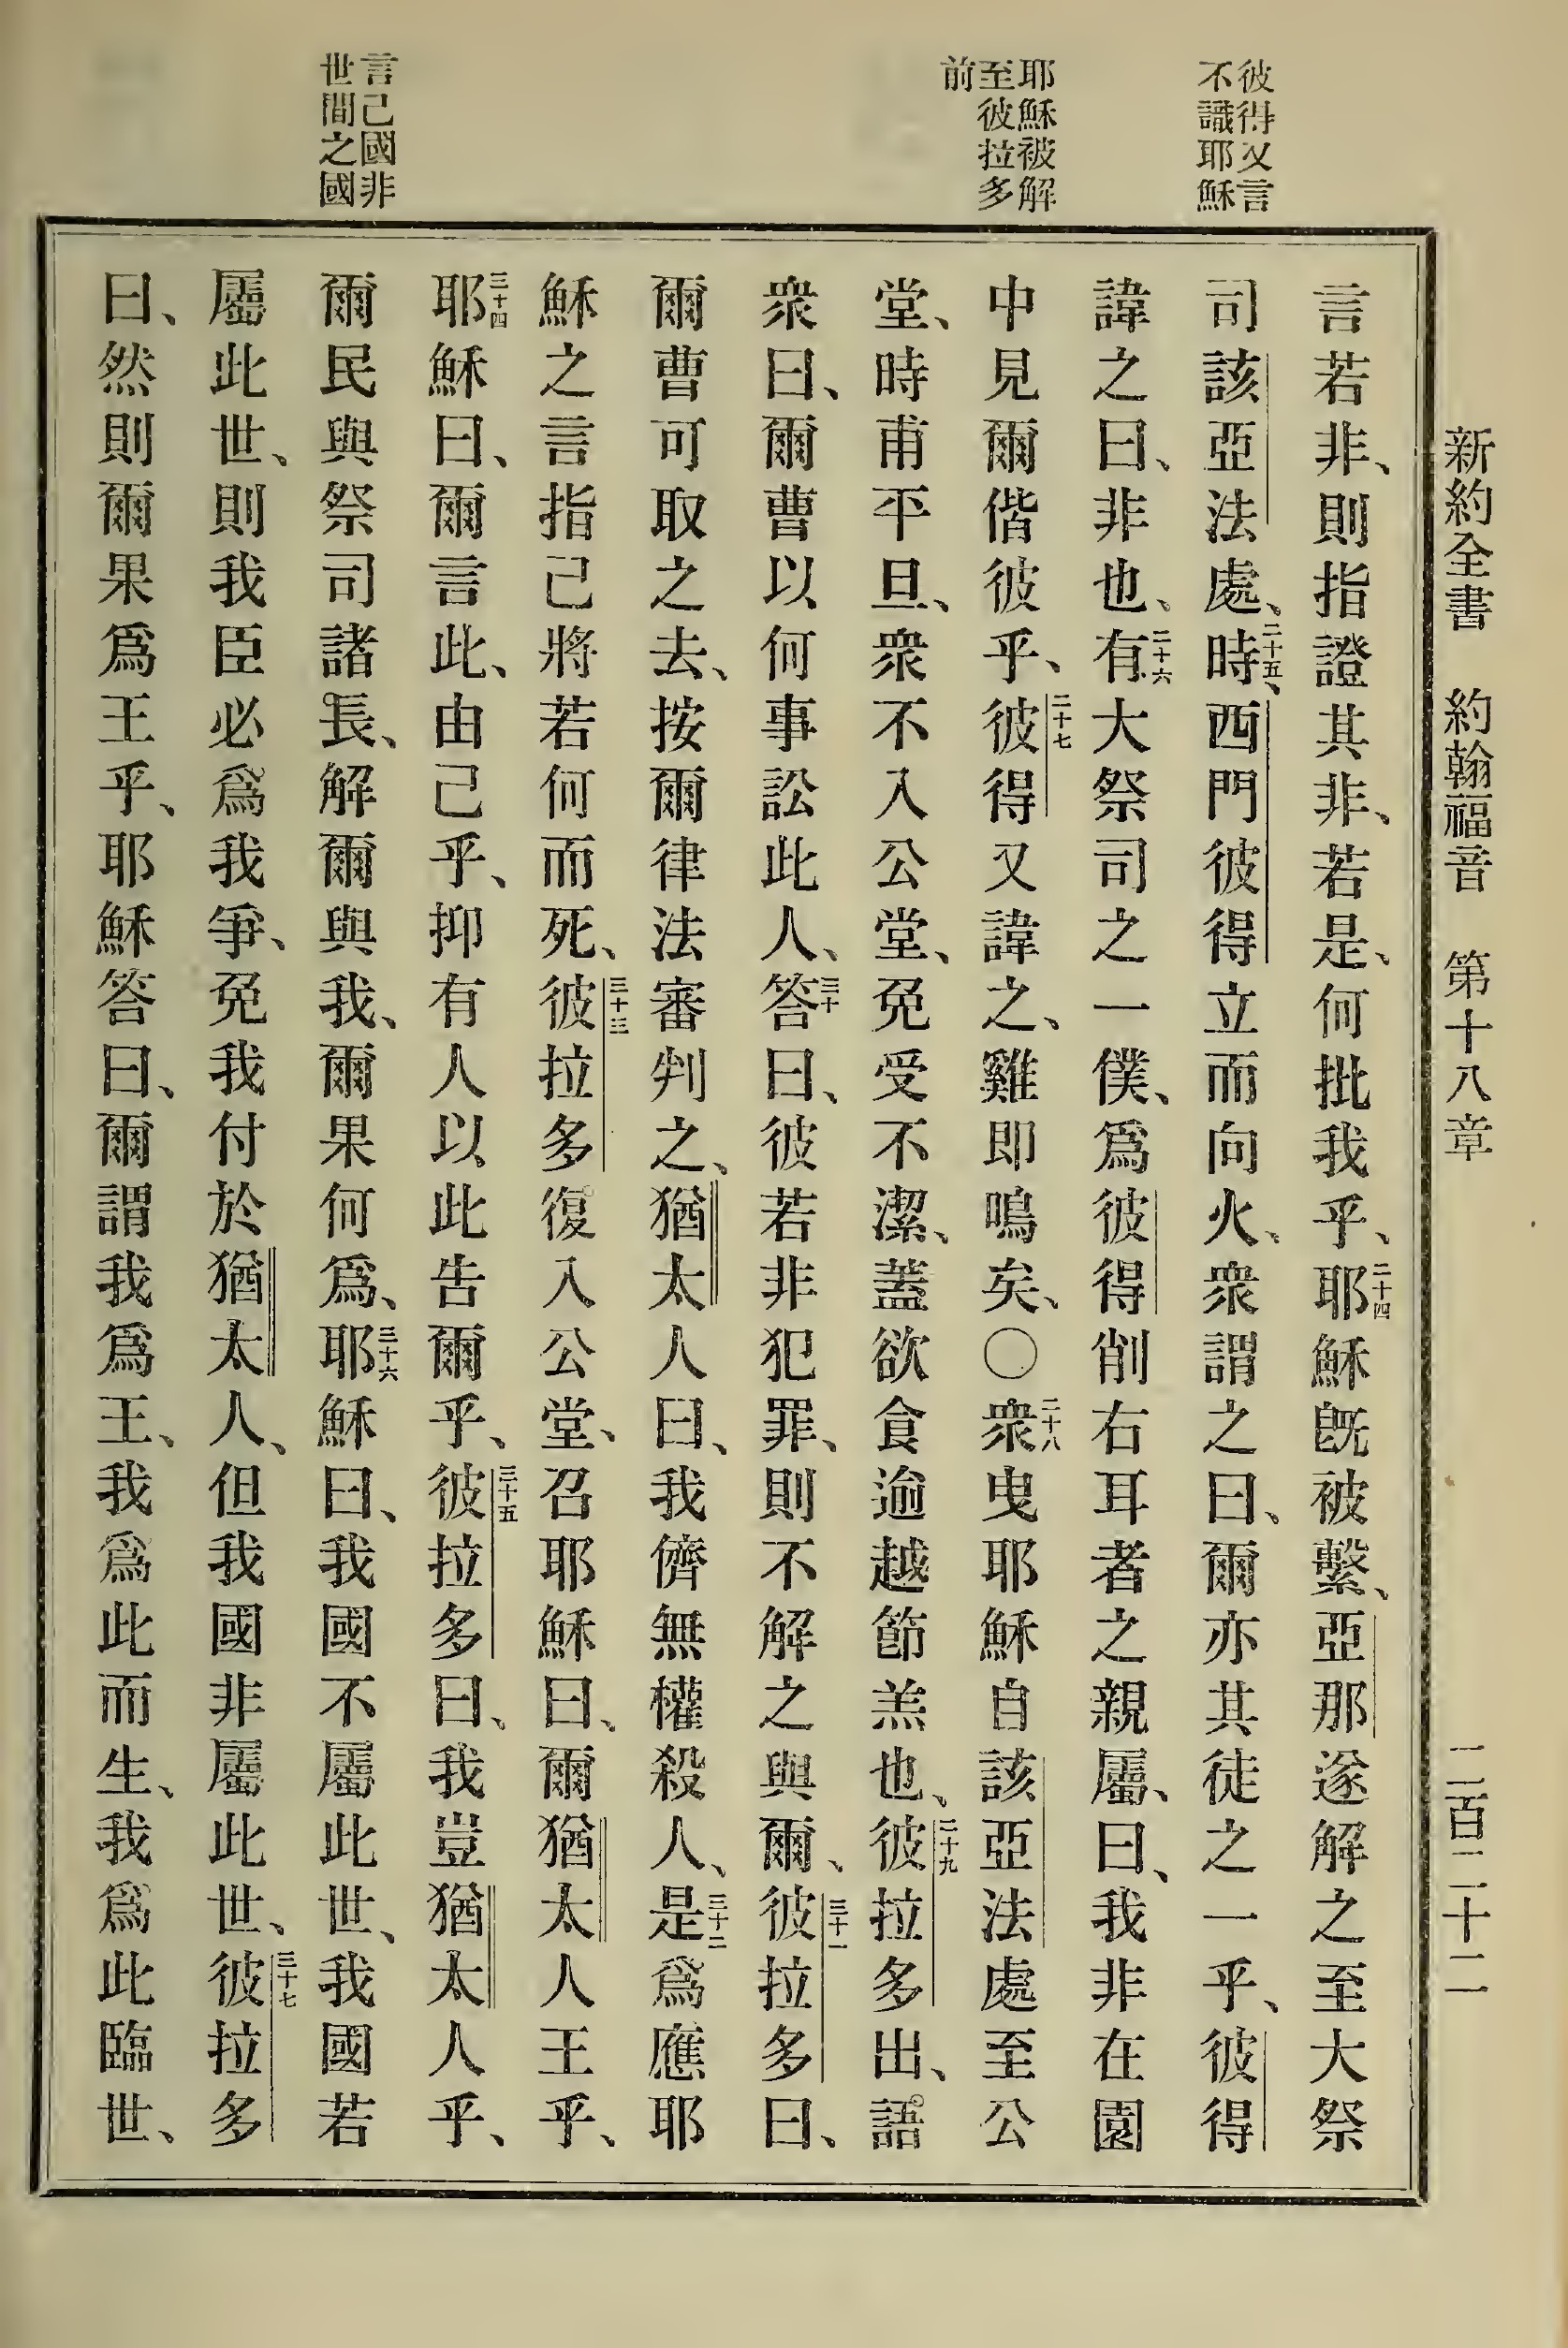 新約全書 約翰福音 第十八章 二百二十二
彼得又言
不識耶穌
耶穌被解
至彼拉多
前
言己國非
世間之國
言若非、則指證其非、若是、何批我乎、二十四耶穌旣被繫、亞那遂解之至大祭
司該亞法處、二十五時、西門彼得立而向火、衆謂之曰、爾亦其徒之一乎、彼得
諱之曰、非也、二十六有大祭司之一僕、爲彼得削右耳者之親屬、曰、我非在園
中見爾偕彼乎、二十七彼得又諱之、雞即鳴矣、○二十八衆曳耶穌自該亞法處至公
堂、時甫平旦、衆不入公堂、免受不潔、蓋欲食逾越節羔也、二十九彼拉多出、語
衆曰、爾曹以何事訟此人、三十答曰、彼若非犯罪、則不解之與爾、三十一彼拉多曰、
爾曹可取之去、按爾律法審判之、猶太人曰、我儕無權殺人、三十二是爲應耶
穌之言指己將若何而死、三十三彼拉多復入公堂、召耶穌曰、爾猶太人王乎、
三十四耶穌曰、爾言此、由己乎、抑有人以此告爾乎、三十五彼拉多曰、我豈猶太人乎、
爾民與祭司諸長、解爾與我、爾果何爲、三十六耶穌曰、我國不屬此世、我國若
屬此世、則我臣必爲我爭、免我付於猶太人、但我國非屬此世、三十七彼拉多
曰、然則爾果爲王乎、耶穌答曰、爾謂我爲王、我爲此而生、我爲此臨世、